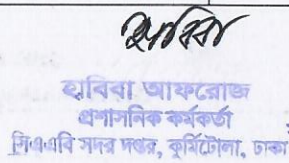 হাবিবা
হাবিবা আফরোজ
প্রশাসনিক কর্মকর্তা
সিএএবি সদর দপ্তর, কুর্মিটোলা, ঢাকা